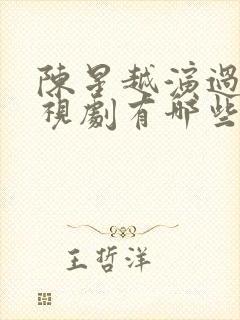 陳星越演過
視劇有哪些
王哲洋